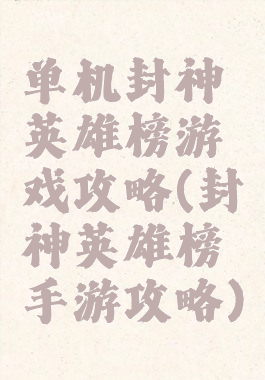 单机封神
英雄榜游
戏攻略(封
神英雄榜
手游攻略)